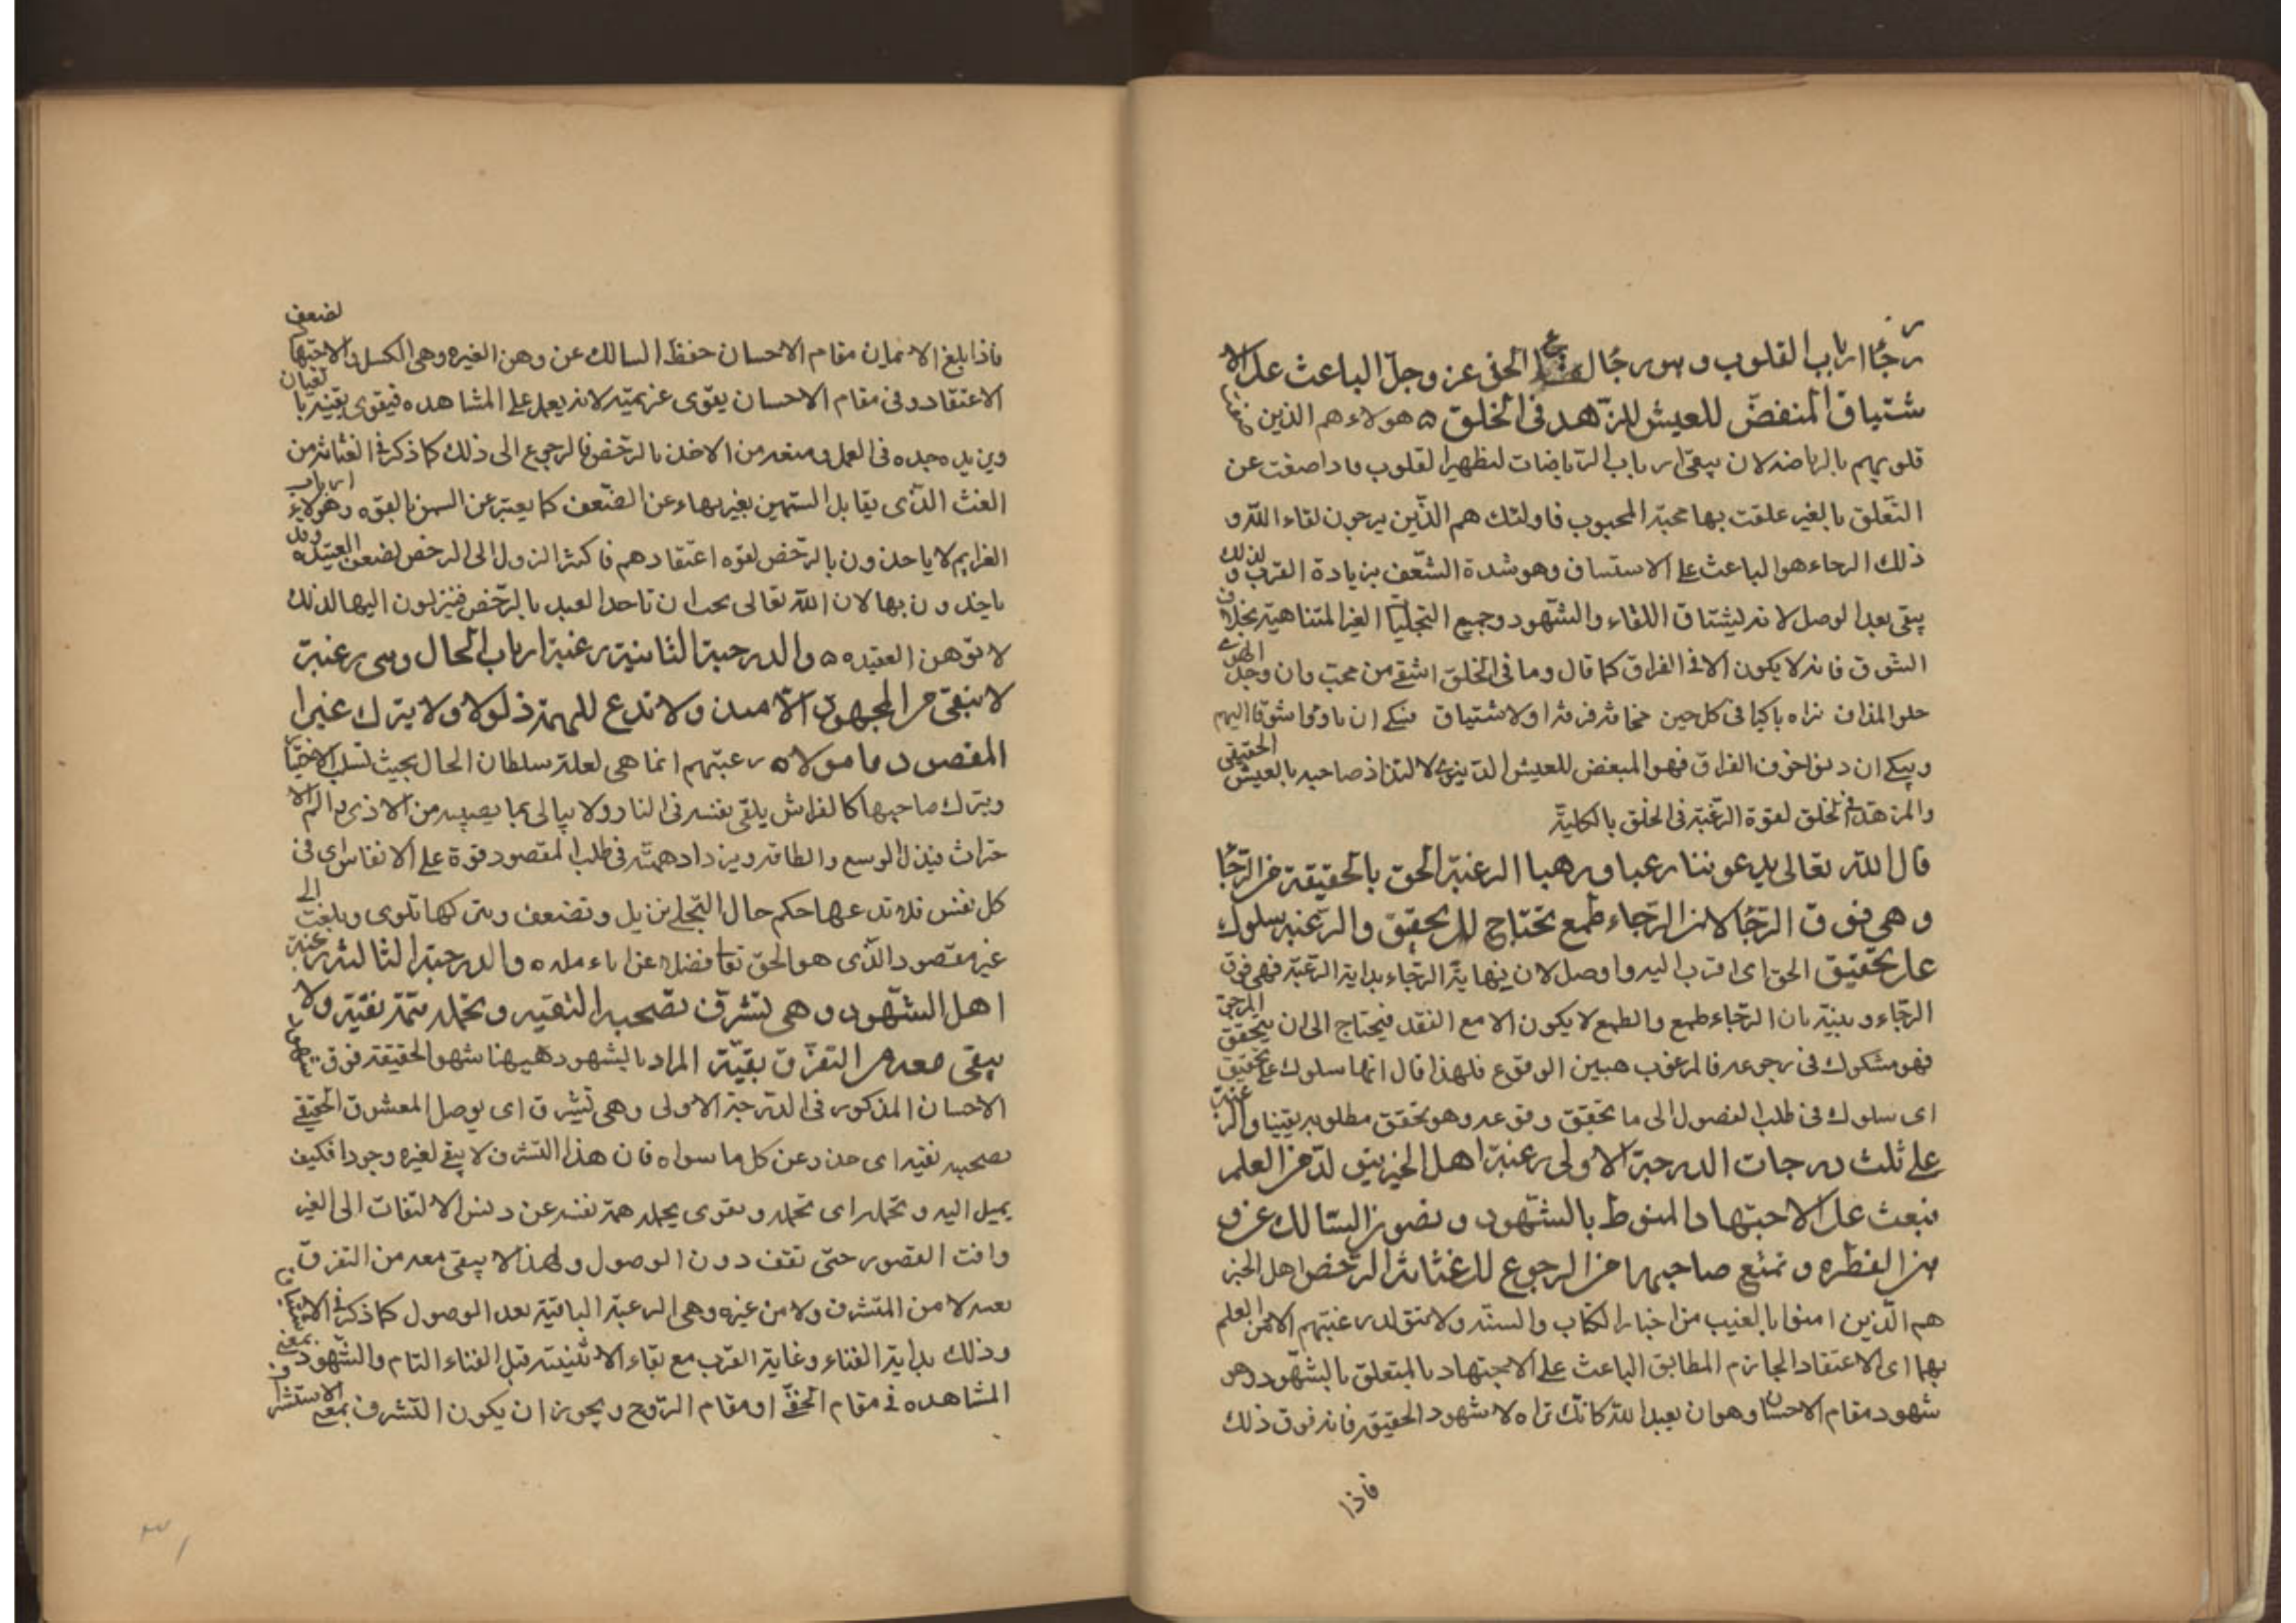 رجاء ارباب القلوب وهو رجاء لقاء الحق عز وجل الباعث على الا
شتياق المنغض للعيش المزهد فى الخلق ه هولاء هم الذين صفت
قلوبهم بالرياضه لان يبقى ارباب الرياضات لتظهير القلوب فاذا صفت عن
التعلق بالغير علقت بها محبة المحبوب فاولئك هم الذين يرجون لقاء الله و
ذلك الرجاء هو الباعث على الاشتياق وهو شدة الشعف بزيادة القرب ولذلك
يبقى بعد الوصل لانه ليشتاق اللقاء والشهود وجميع التجليات الغير المتناهية بخلاف
الشوق فانه لا يكون الا فى الفراق كما قال وما فى الخلق اشقى من محب وان وجد الهوى
حلو المذاق تراه باكيا فى كل حين مخافة فرقة او لاشتياق فيبكى ان ناوا شوقا اليهم
ويبكى ان دنوا خوف الفراق فهو المبغض للعيش الدنيوى لالتذاذ صاحبه بالعيش الحقيقى
والمزهد فى الخلق لقوة الرغبة فى الخلق بالكلية
قال الله تعالى يدعوننا رغبا ورهبا الرغبة الحق بالحقيقة من الرجا
وهى فوق الرجا لان الرجاء طمع تحتاج الى تحقيق والرغبه سلوك
على تحقيق الحق اى اقرب اليه واوصل لان نهاية الرجاء بداية الرغبة فهى فوق
الرجاء وبينه بان الرجاء طمع والطمع لا يكون الا مع الفقد فيحتاج الى ان يتحقق المرجو
فهو مشكوك فى رجوعه فالمرغوب هبين الوقوع فلهذا قال انها سلوك على تحقيق
اى سلوك فى طلب الفصول الى ما تحقق وقوعه وهو تحقق مطلوبه يقينا والرغبة
على ثلث درجات الدرجة الاولى رغبة اهل الخير يتولد من العلم
فيبعث على الاجتهاد المنوط بالشهود وتصون السالك عن و
هن الفطره وتمنع صاحبها من الرجوع الى غثاثة الرخص اهل الخبر
هم الذين امنوا بالغيب من اخبار الكتاب والسنه ولا تتولد رغبتهم الا من العلم
بهما اى الاعتقاد الجازم المطابق الباعث على الاجتهاد بالمتعلق بالشهود وهو
شهود مقام الاحسان وهو ان يعبد الله كانك تراه لا شهود الحقيقه فانه فوق ذلك
فاذا
فاذا بلغ الايمان مقام الاحسان حفظ السالك عن وهن الغيره وهى الكسل فى الاجتهاد لضعف
الاعتقاد وفى مقام الاحسان يقوى عزيمته لانه يعمل على المشاهده فيقوى يقينه بالغيان
ويزيد جده فى العمل ويمنعه من الاخذ بالرخص فالرجوع الى ذلك كما ذكر فى الغثاثة من
الغث الذى يقابل السمين بغير بهاء عن الضعف كما يعبر عن السمن بالقوه وهولاء ارباب
العزايم لا ياخذون بالرخص لقوه اعتقادهم فاكثر النزول الى الرخص لضعف العقيده وقد
ياخذون بها لان الله تعالى يحب ان تاخذ العبد بالرخص فينزلون اليها لذلك
لا توهن العقيده ه والدرجة الثانية رغبة ارباب الحال وهى رغبة
لا تبقى من المجهود الا مبذولا ولا تدع للهمة ذبولا ولا يترك غير
المقصود مامولا ه رغبتهم انما هى لغلبة سلطان الحال بحيث تسلب الاختيار
ويترك صاحبها كالفراش يلقى نفسه فى النار ولا يبالى بما يصيبه من الاذى والم الا
حتراث فيبذل الوسع والطاقه ويزداد همته فى طلب المقصود قوة على الانفاس اى فى
كل نفس فلا تدعها حكم حال التجلى تزيل وتضعف ويتركها تلوى ويلغت الى
غير مقصود الذى هو الحق تعا فضلا عن ان يامله ه والدرجة الثالثة رغبة
اهل الشهود وهى تشرف تصحبه التقيه وتحمله همة نقية ولا
يبقى معه من التفرق بقية المراد بالشهود هيهنا شهود الحقيقة فوق مقام
الاحسان المذكور فى الدرجة الاولى وهى تشرف اى يوصل المعشوق الحقيقى
تصحبه نقيه اى حذر وعن كل ما سواه فان هذا التشرف لا يبقى لغيره وجودا فكيف
يميل اليه وتحمله اى تحمله وتقوى يحمله همة نفسه عن دنس الالتفات الى الغير
وافت القصور حتى تقف دون الوصول ولهذا لا يبقى معه من التفرق
بقيه لا من المتشرف ولا من غيره وهى الرغبة الباقية بعد الوصول كما ذكر فى الاشتياق
وذلك بداية الفناء وغاية القرب مع بقاء الاثنينية قبل الفناء التام والشهود بمعنى
المشاهده فى مقام الخفى او مقام الروح ويجوز ان يكون التشرف بمعنى الاستشراف